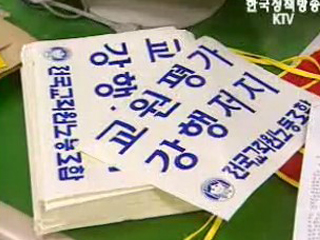 한국정책방송
KTV
교원평가
강행저지
전국교직원노동조합
교원평가
강행저지
전국교직원노동조합